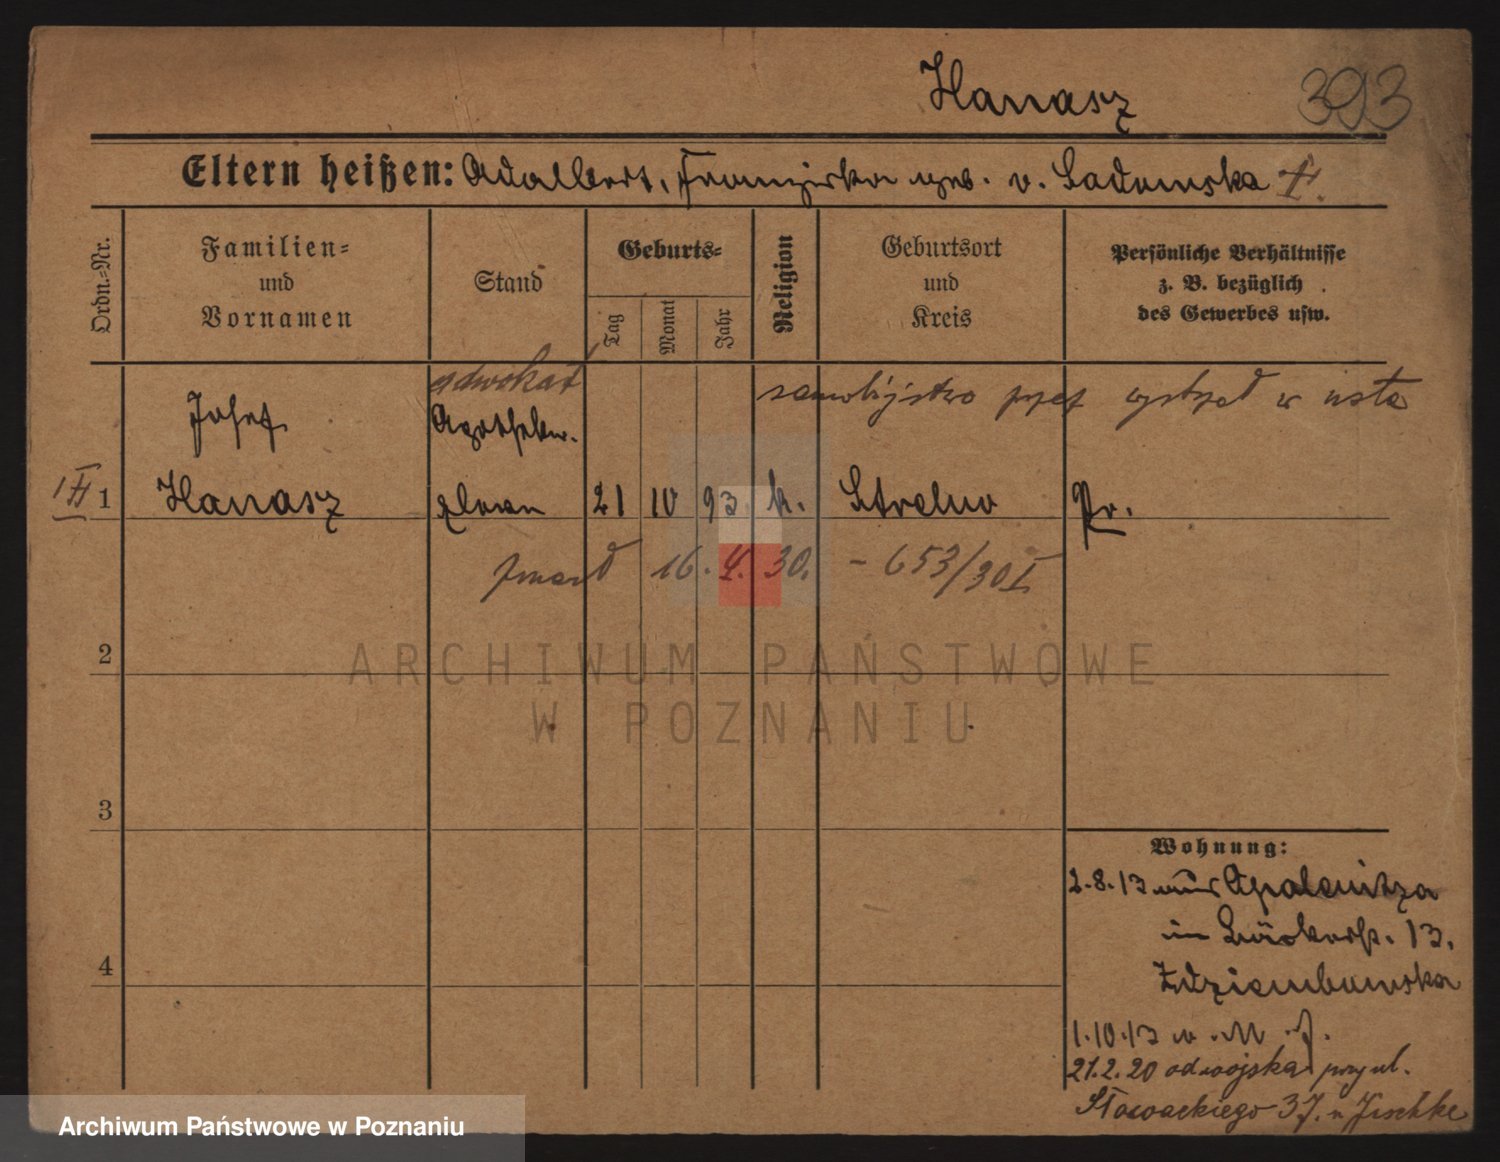 Hanasz 393
Eltern heißen: Adalbert, Franziska geb. v. Sadowska
Ordn.=Nr.
Familien=
und
Vornamen
Stand
Geburts=
Tag
Monat
Jahr
Religion
Geburtsort
und
Kreis
Persönliche Verhältnisse
z. B. bezüglich
des Gewerbes usw.
adwokat
samobójstwo przez wystrzał w usta
Josef
Apotheker
1 Hanasz eleve 21 10 93. k. Strelno Pr.
zmarł 16.4.30. - 653/30 I
2
ARCHIWUM PAŃSTWOWE
W POZNANIU
3
Wohnung:
2.8.13 aus Opalenitza
in Bäckerstr. 13.
4
Zdziembowska
1.10.13 n.
21.2.20 od wojska przy ul.
Słowackiego 37. u Jeschke
Archiwum Państwowe w Poznaniu